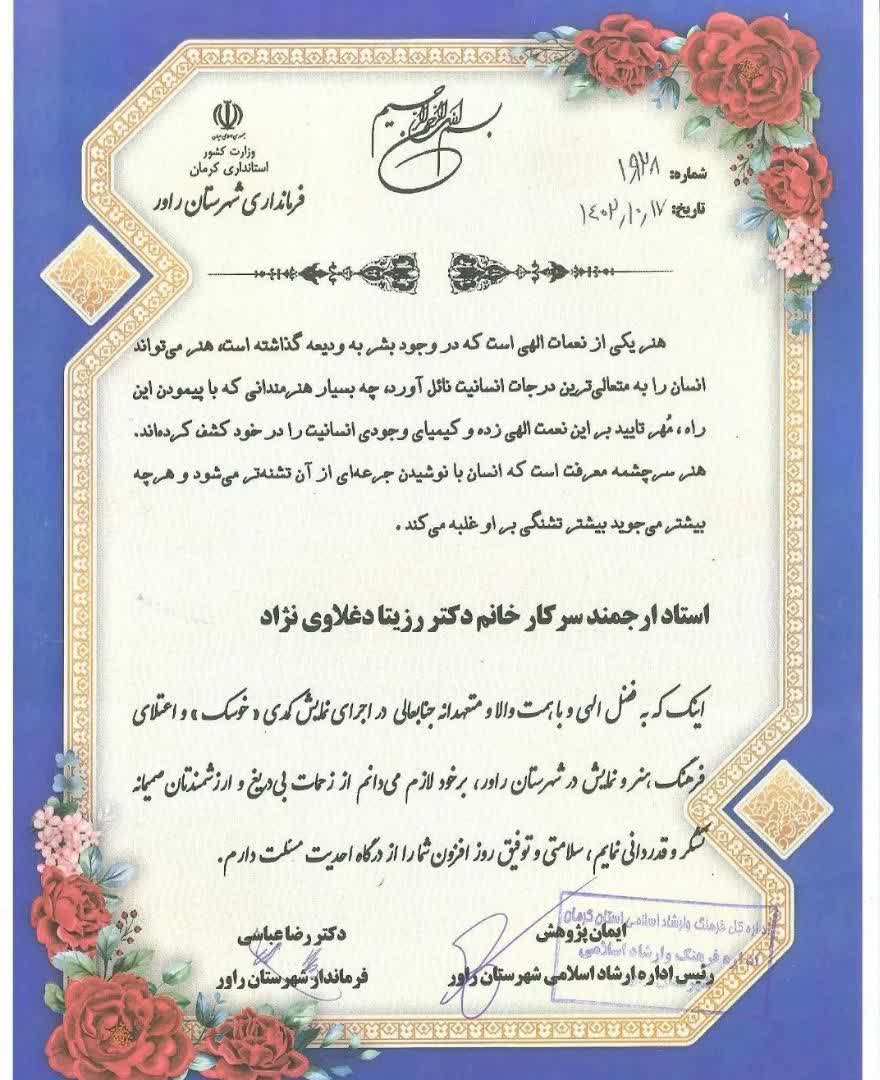 بسم الله الرحمن الرحیم
جمهوری اسلامی ایران
وزارت کشور
استانداری کرمان
فرمانداری شهرستان راور
شماره: ۱۹۲۸
تاریخ: ۱۴۰۲/۱۰/۱۷
هنر یکی از نعمات الهی است که در وجود بشر به ودیعه گذاشته است، هنر می‌تواند
انسان را به متعالی‌ترین درجات انسانیت نائل آورد، چه بسیار هنرمندانی که با پیمودن این
راه ، مُهر تایید بر این نعمت الهی زده و کیمیای وجودی انسانیت را در خود کشف کرده‌اند.
هنر سرچشمه معرفت است که انسان با نوشیدن جرعه‌ای از آن تشنه‌تر می‌شود و هرچه
بیشتر می‌جوید بیشتر تشنگی بر او غلبه می‌کند .
استاد ارجمند سرکار خانم دکتر رزیتا دغلاوی نژاد
اینک که به فضل الهی و با همت والا و متعهدانه جنابعالی در اجرای نمایش کمدی « خوسک » و اعتلای
فرهنگ ،هنر و نمایش در شهرستان راور، برخود لازم می‌دانم از زحمات بی‌دریغ و ارزشمندتان صمیمانه
تشکر و قدردانی نمایم ، سلامتی و توفیق روز افزون شما را از درگاه احدیت مسئلت دارم .
اداره کل فرهنگ وارشاد اسلامی استان کرمان
اداره فرهنگ وارشاد اسلامی
ایمان پژوهش
رئیس اداره ارشاد اسلامی شهرستان راور
دکتر رضا عباسی
فرماندار شهرستان راور